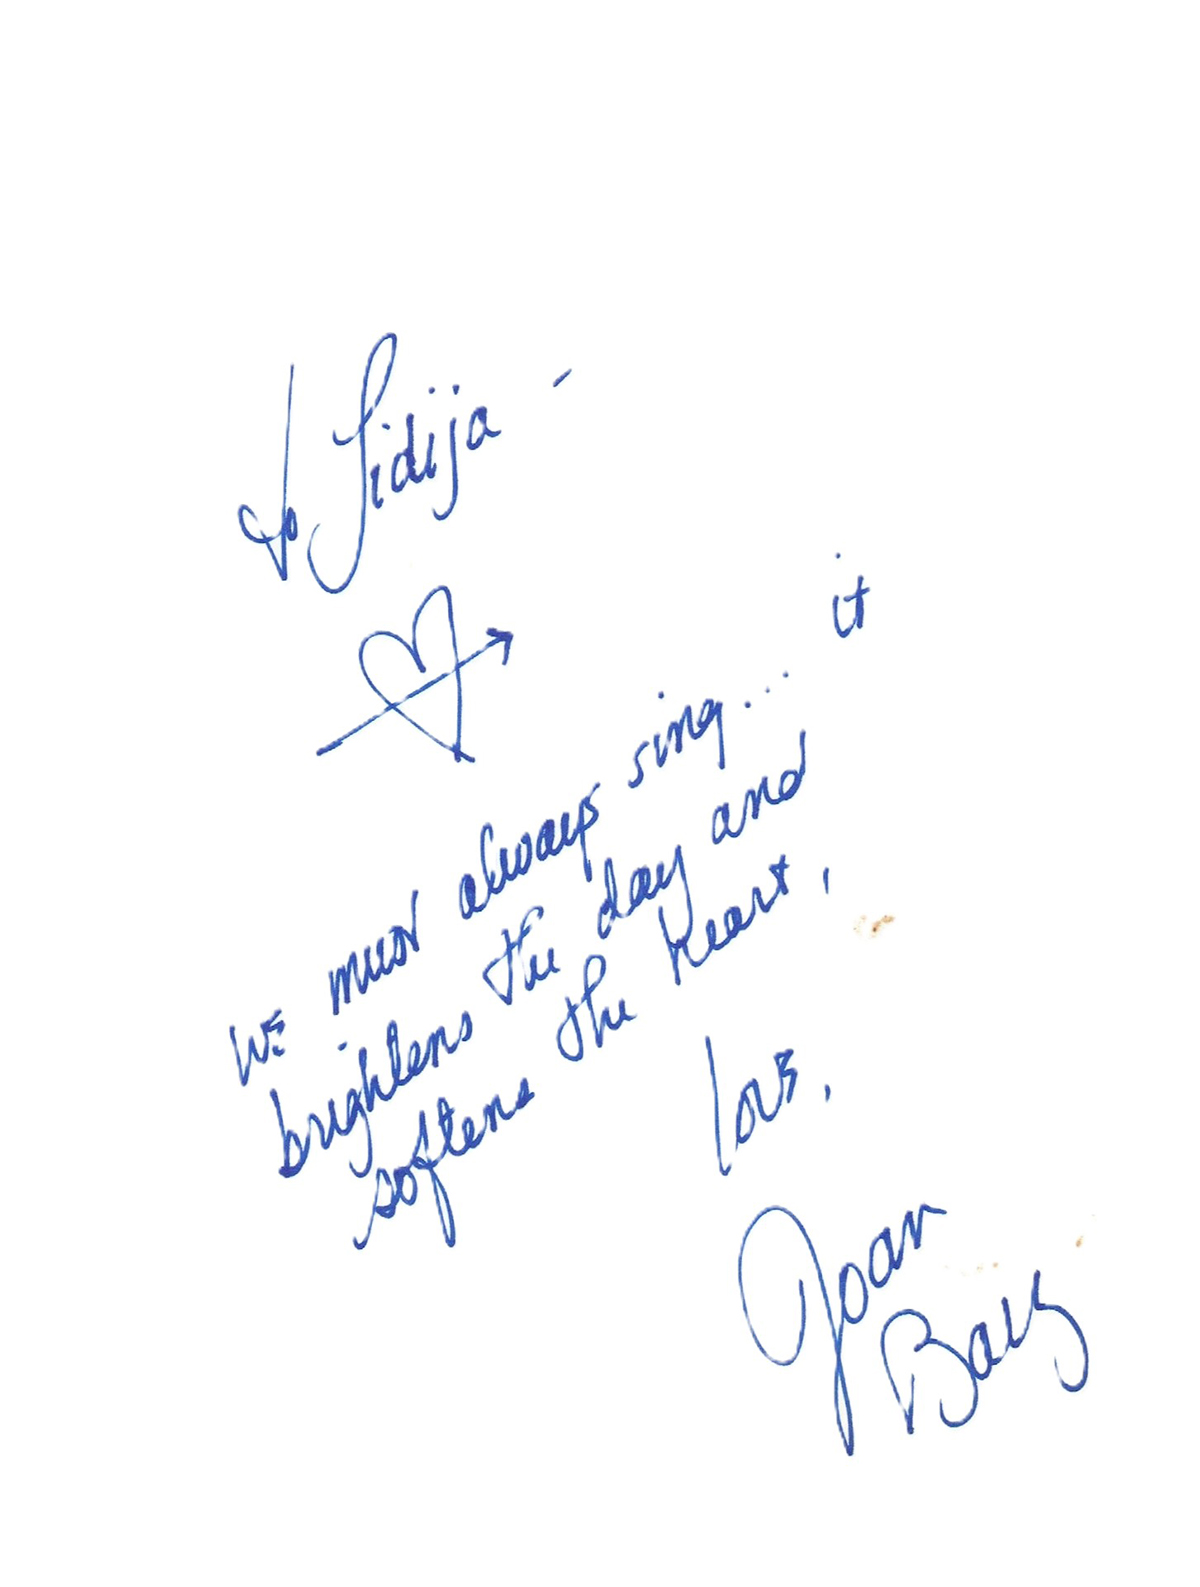 to Lidija -
we must always sing... it
brightens the day and
softens the heart,
love,
Joan
Baez